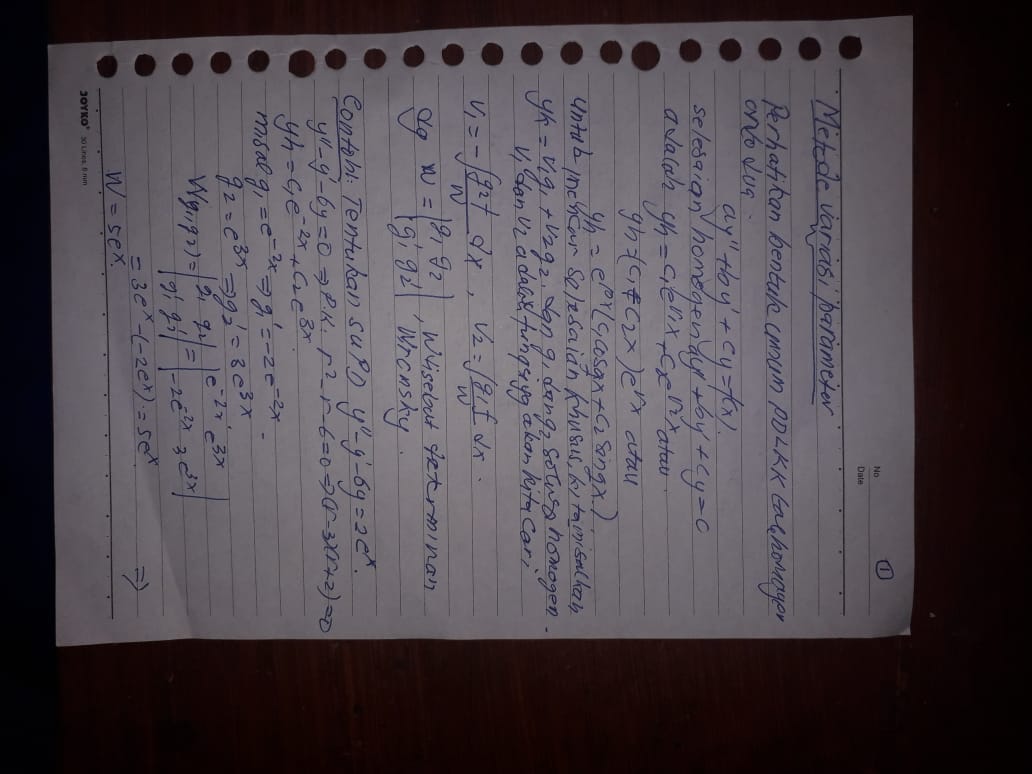 No
Date
1
Metode variasi parameter
Perhatikan bentuk umum PDLKK tak homogen
orde dua.
ay'' + by' + cy = f(x).
selesaian homogen ay'' + by' + cy = 0
adalah yh = c₁e^r₁x + c₂e^r₂x atau
yh = (c₁ + c₂x)e^rx atau
yh = e^px(c₁cosqx + c₂sinqx).
untuk mencari selesaian khusus, kita misalkan
yk = v₁g₁ + v₂g₂. dgn g₁ dan g₂ solusi homogen.
v₁ dan v₂ adalah fungsi yg akan kita cari
v₁ = -∫ g₂f/W dx , v₂ = ∫ g₁f/W dx.
dg W = |g₁ g₂|
|g₁' g₂'| , W disebut determinan
Wronsky.
Contoh: Tentukan SUPD y'' - y' - 6y = 2e^x.
y'' - y' - 6y = 0 ⇒ P.K. r² - r - 6 = 0 ⇒ (r-3)(r+2) = 0
yh = c₁e^-2x + c₂e^3x.
misal g₁ = e^-2x ⇒ g₁' = -2e^-2x.
g₂ = e^3x ⇒ g₂' = 3e^3x.
W(g₁,g₂) = |g₁ g₂| = |e^-2x e^3x|
|g₁' g₂'| |-2e^-2x 3e^3x|
= 3e^x - (-2e^x) = 5e^x. ⇒
W = 5e^x.
JOYKO® 30 Lines, 8 mm